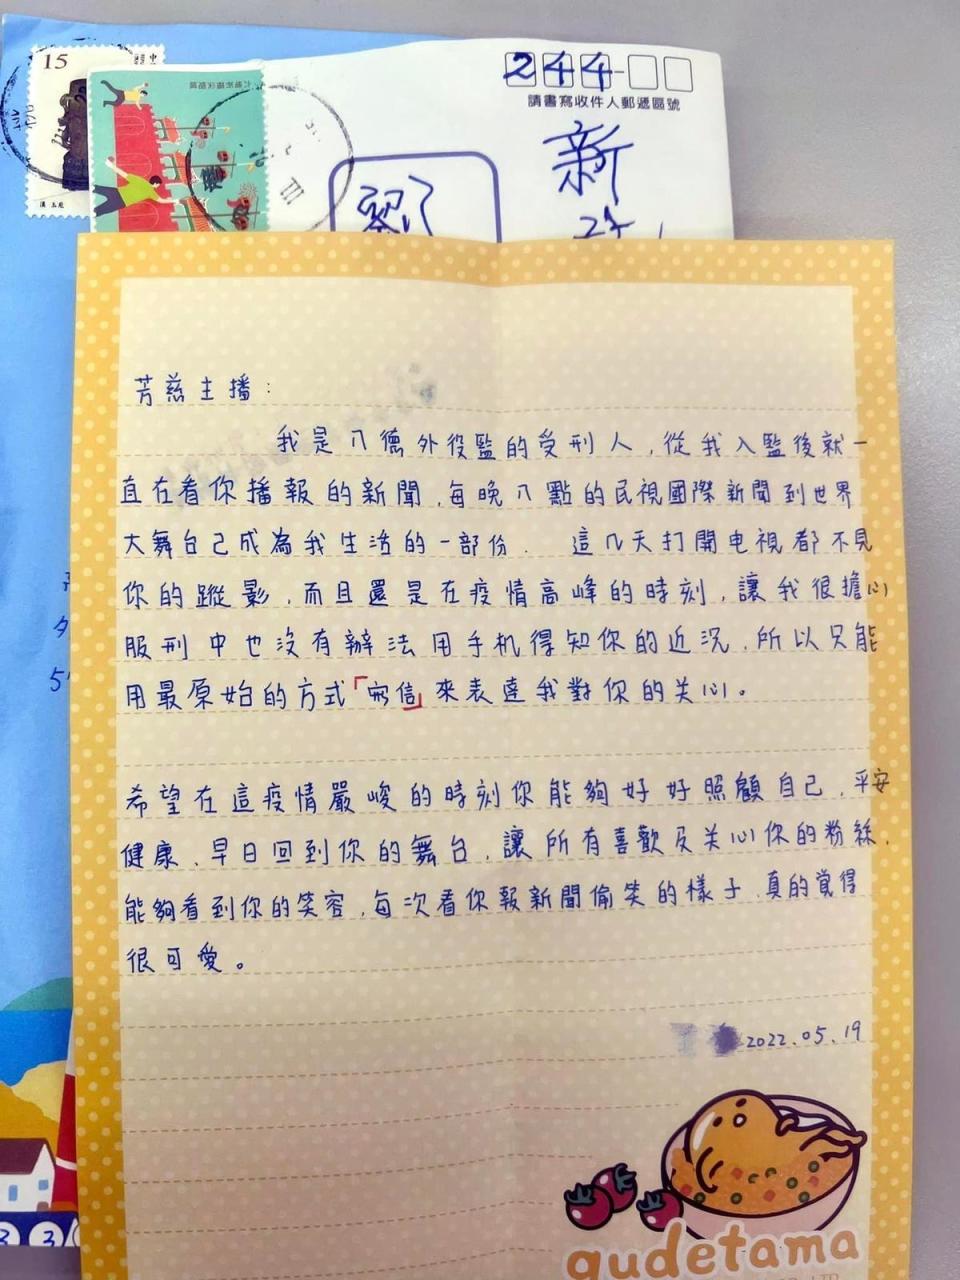 15
244
請書寫收件人郵遞區號
新
劉
芳慈主播：
我是八德外役監的受刑人，從我入監後就一
直在看你播報的新聞，每晚八點的民視國際新聞到世界
大舞台己成為我生活的一部份． 這几天打開电視都不見
你的蹤影，而且還是在疫情高峰的時刻，讓我很擔心
服刑中也沒有辦法用手机得知你的近況，所以只能
用最原始的方式「寫信」來表達我對你的关心。
希望在這疫情嚴峻的時刻你能夠好好照顧自己，平安
健康、早日回到你的舞台，讓所有喜歡及关心你的粉絲，
能夠看到你的笑容，每次看你報新聞偷笑的樣子，真的覺得
很可愛。
2022.05.19
gudetama